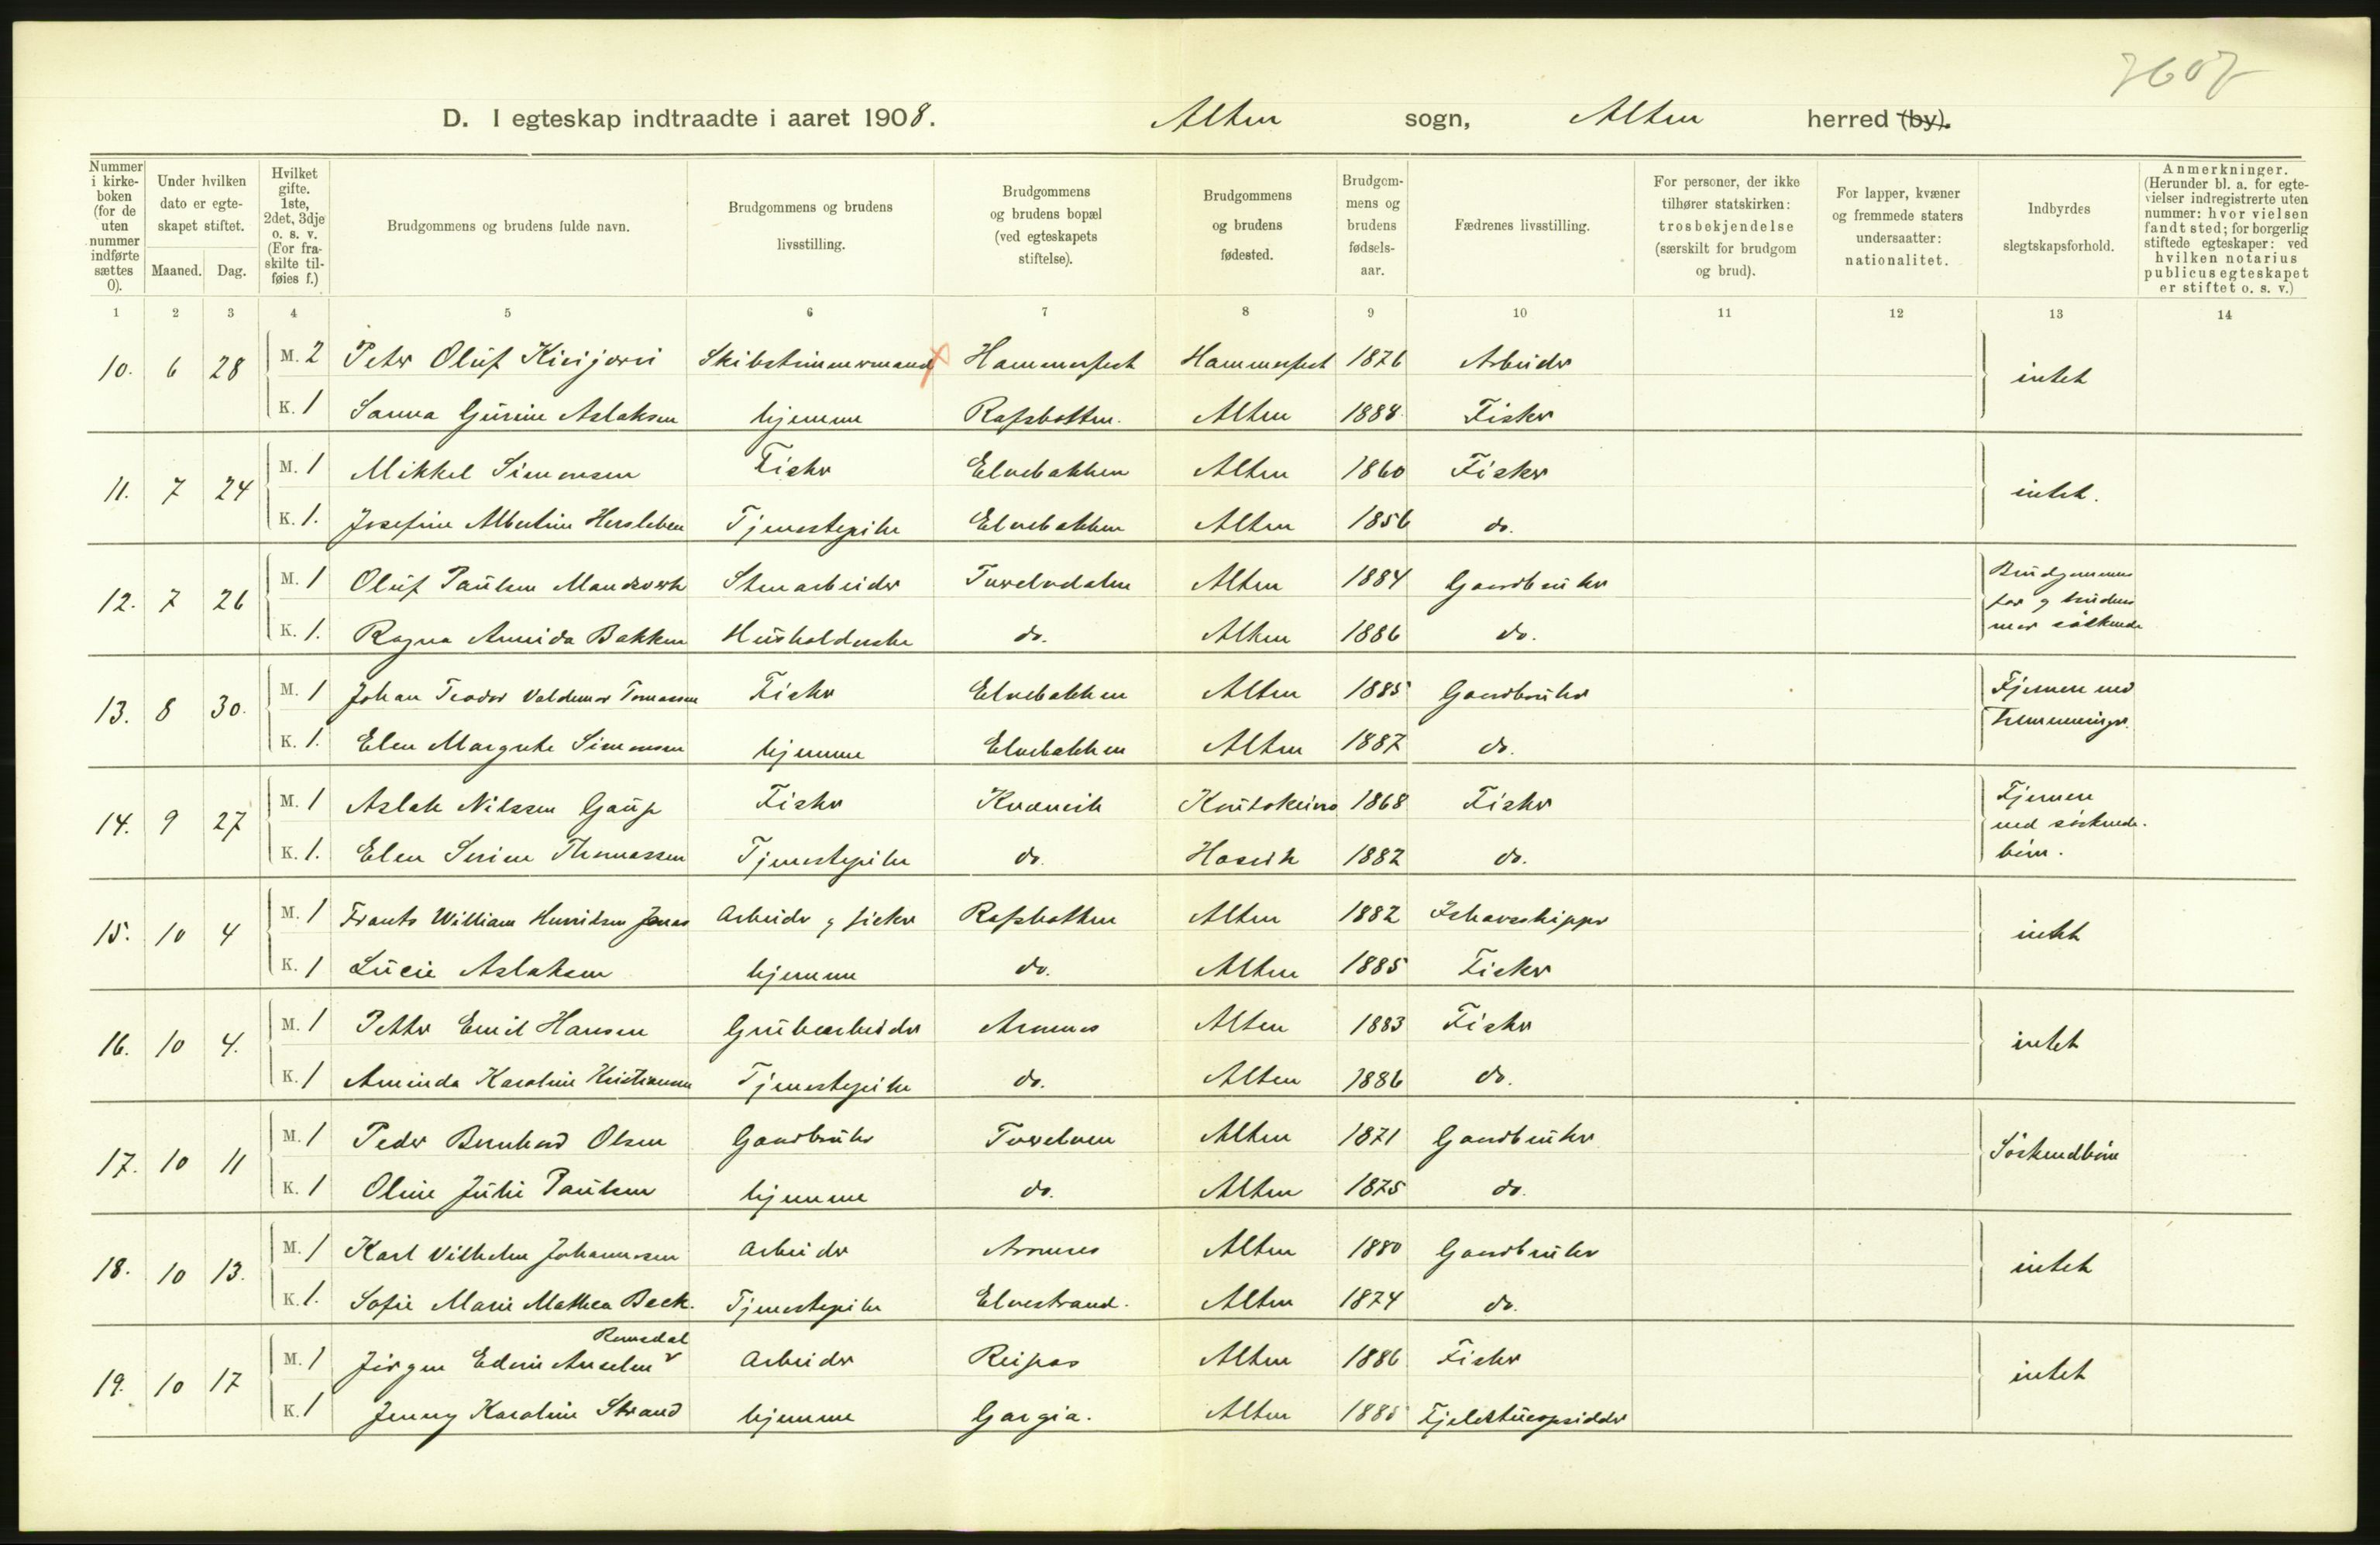 7607
D. I egteskap indtraadte i aaret 1908. Alten sogn, Alten herred (by).
Nummer i kirkeboken (for de uten nummer indførte sættes 0).
Under hvilken dato er egteskapet stiftet.
Maaned. Dag.
Hvilket gifte. 1ste, 2det, 3dje o. s. v. (For fraskilte tilføies f.)
Brudgommens og brudens fulde navn.
Brudgommens og brudens livsstilling.
Brudgommens og brudens bopæl (ved egteskapets stiftelse).
Brudgommens og brudens fødested.
Brudgommens og brudens fødselsaar.
Fædrenes livsstilling.
For personer, der ikke tilhører statskirken: trosbekjendelse (særskilt for brudgom og brud).
For lapper, kvæner og fremmede staters undersaatter: nationalitet.
Indbyrdes slegtskapsforhold.
Anmerkninger. (Herunder bl. a. for egtevielser indregistrerte uten nummer: hvor vielsen fandt sted; for borgerlig stiftede egteskaper: ved hvilken notarius publicus egteskapet er stiftet o. s. v.)
1 2 3 4 5 6 7 8 9 10 11 12 13 14
10. 6 28 M. 2 Peter Oluf Kivijervi Skibstimmermand Hammerfest Hammerfest 1876 Arbeider intet
K. 1 Sanna Gurine Aslaksen hjemme Rafsbotten. Alten 1888 Fisker
11. 7 24 M. 1 Mikkel Simonsen Fisker Elvebakken Alten 1860 Fisker intet.
K. 1. Josefine Albertine Hersleben Tjenestepike Elvebakken Alten 1856 do.
12. 7 26 M. 1 Oluf Paulsen Mandsverk Stenarbeider Tverelvdalen Alten 1884 Gaardbruker Brudgommens far og brudens mor søskende
K. 1. Ragna Annida Bakken Husholderske do. Alten 1886 do.
13. 8 30. M. 1 Johan Teodor Valdemar Tomassen Fisker Elvebakken Alten 1885 Gaardbruker Fjernere end tremenninger.
K. 1. Elen Margrete Simonsen hjemme Elvebakken Alten 1887 do.
14. 9 27 M. 1 Aslak Nilssen Gaup Fisker Kvænvik Koutokeino 1868 Fisker Fjernere end søskendebørn.
K. 1. Elen Serine Thomassen Tjenestepike do. Hasvik 1882 do.
15. 10 4 M. 1 Frants William Henriksen Jonas Arbeider og fisker Rafsbotten Alten 1882 Ishavsskipper intet
K. 1 Lucie Aslaksen hjemme do. Alten 1885 Fisker
16. 10 4. M. 1 Petter Emil Hansen Grubearbeider Aronnes Alten 1883 Fisker intet
K. 1 Aminda Karoline Kristiansen Tjenestepike do. Alten 1886 do.
17. 10 11 M. 1 Peder Bernhard Olsen Gaardbruker Tverelven Alten 1871 Gaardbruker Søskendbørn
K. 1 Oline Julie Paulsen hjemme do. Alten 1875 do.
18. 10 13. M. 1 Karl Vilhelm Johannesen Arbeider Aronnes Alten 1880 Gaardbruker intet
K. 1. Sofie Marie Mathea Beck. Tjenestepike Elvestrand. Alten 1874 do.
Romsdal
19. 10 17 M. 1 Jørgen Edvin Anselm Arbeider Reipas Alten 1886 Fisker intet
K. 1 Jenny Karoline Strand hjemme Gargia. Alten 1885 Fjeldstueopsidder